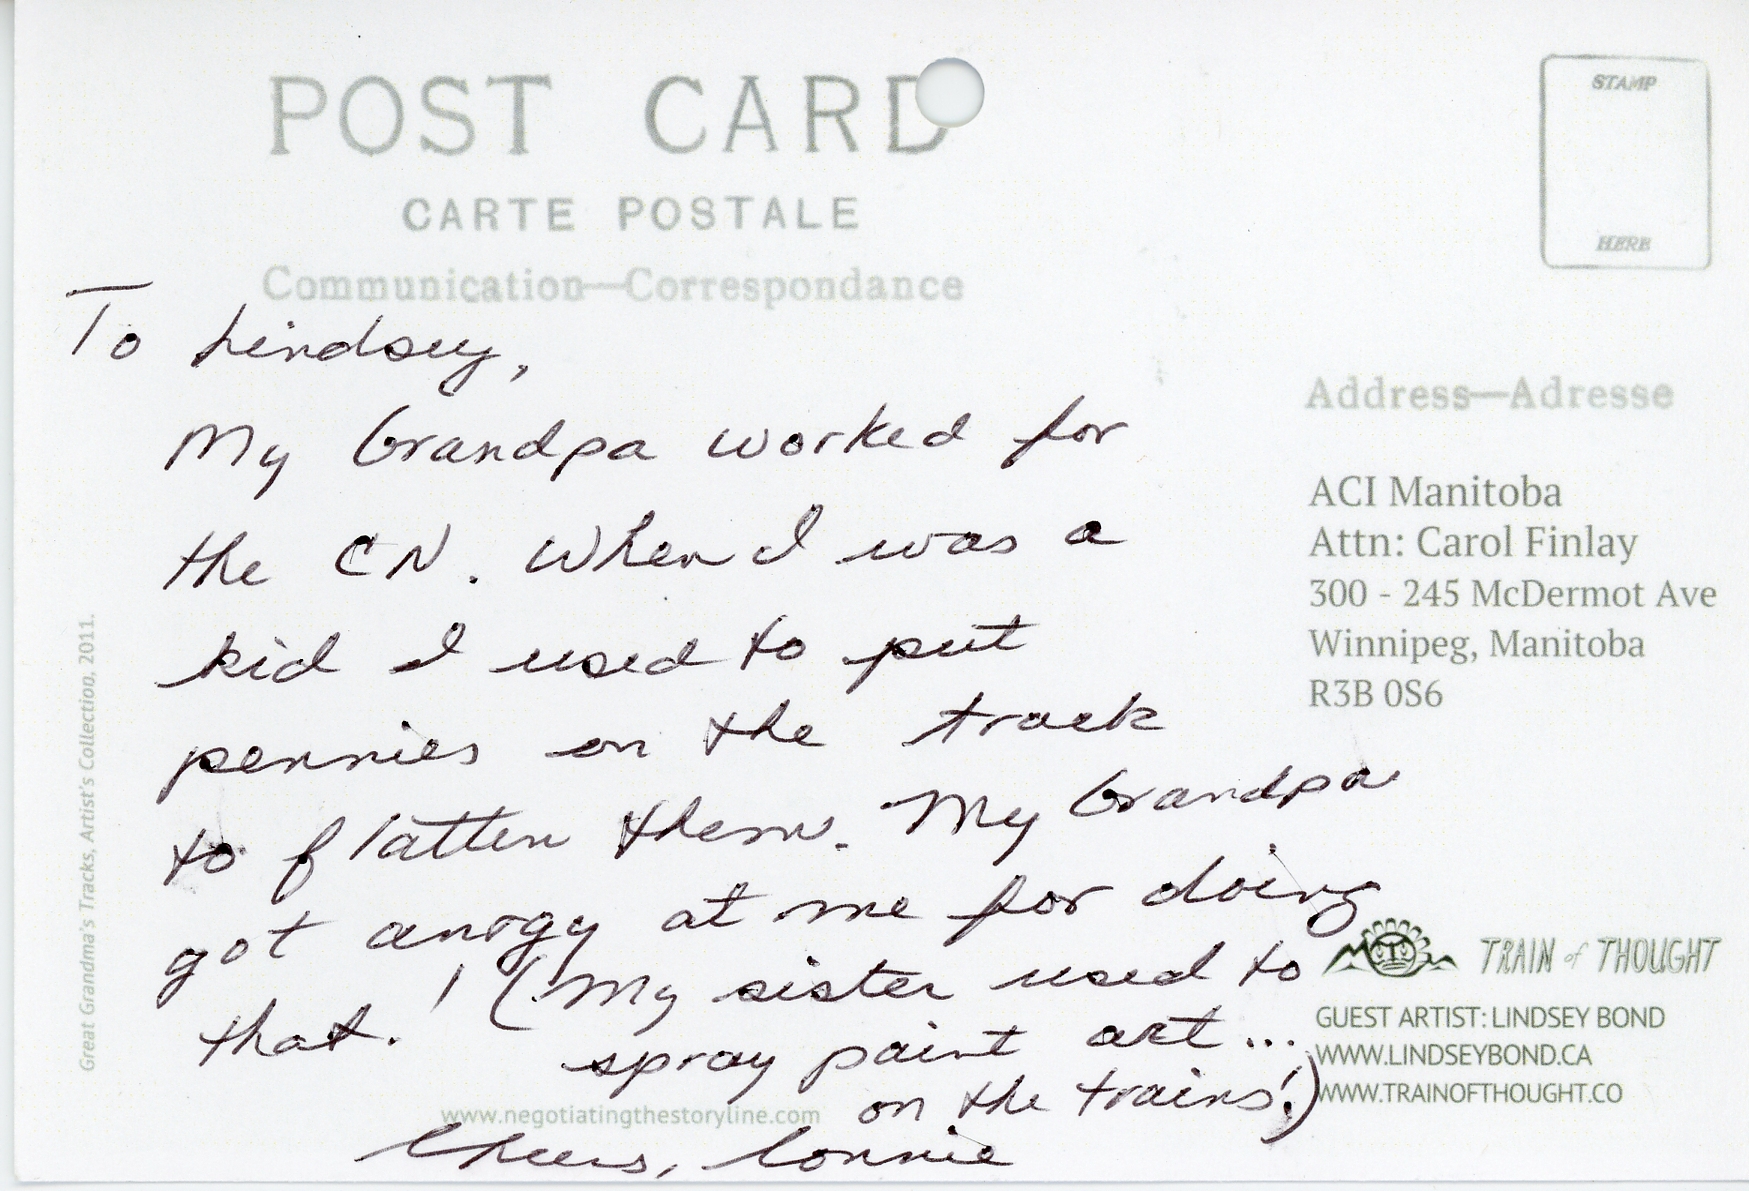 POST CARD
CARTE POSTALE
Communication—Correspondance
STAMP
HERE
To Lindsey,
My Grandpa worked for
the CN. When I was a
kid I used to put
pennies on the track
to flatten them. My Grandpa
got anrgy at me for doing
that. ! (My sister used to
spray paint art...
on the trains!)
Cheers, Lonnie
www.negotiatingthestoryline.com
Great Grandma's Tracks, Artist's Collection, 2011.
Address—Adresse
ACI Manitoba
Attn: Carol Finlay
300 - 245 McDermot Ave
Winnipeg, Manitoba
R3B 0S6
TRAIN of THOUGHT
GUEST ARTIST: LINDSEY BOND
WWW.LINDSEYBOND.CA
WWW.TRAINOFTHOUGHT.CO